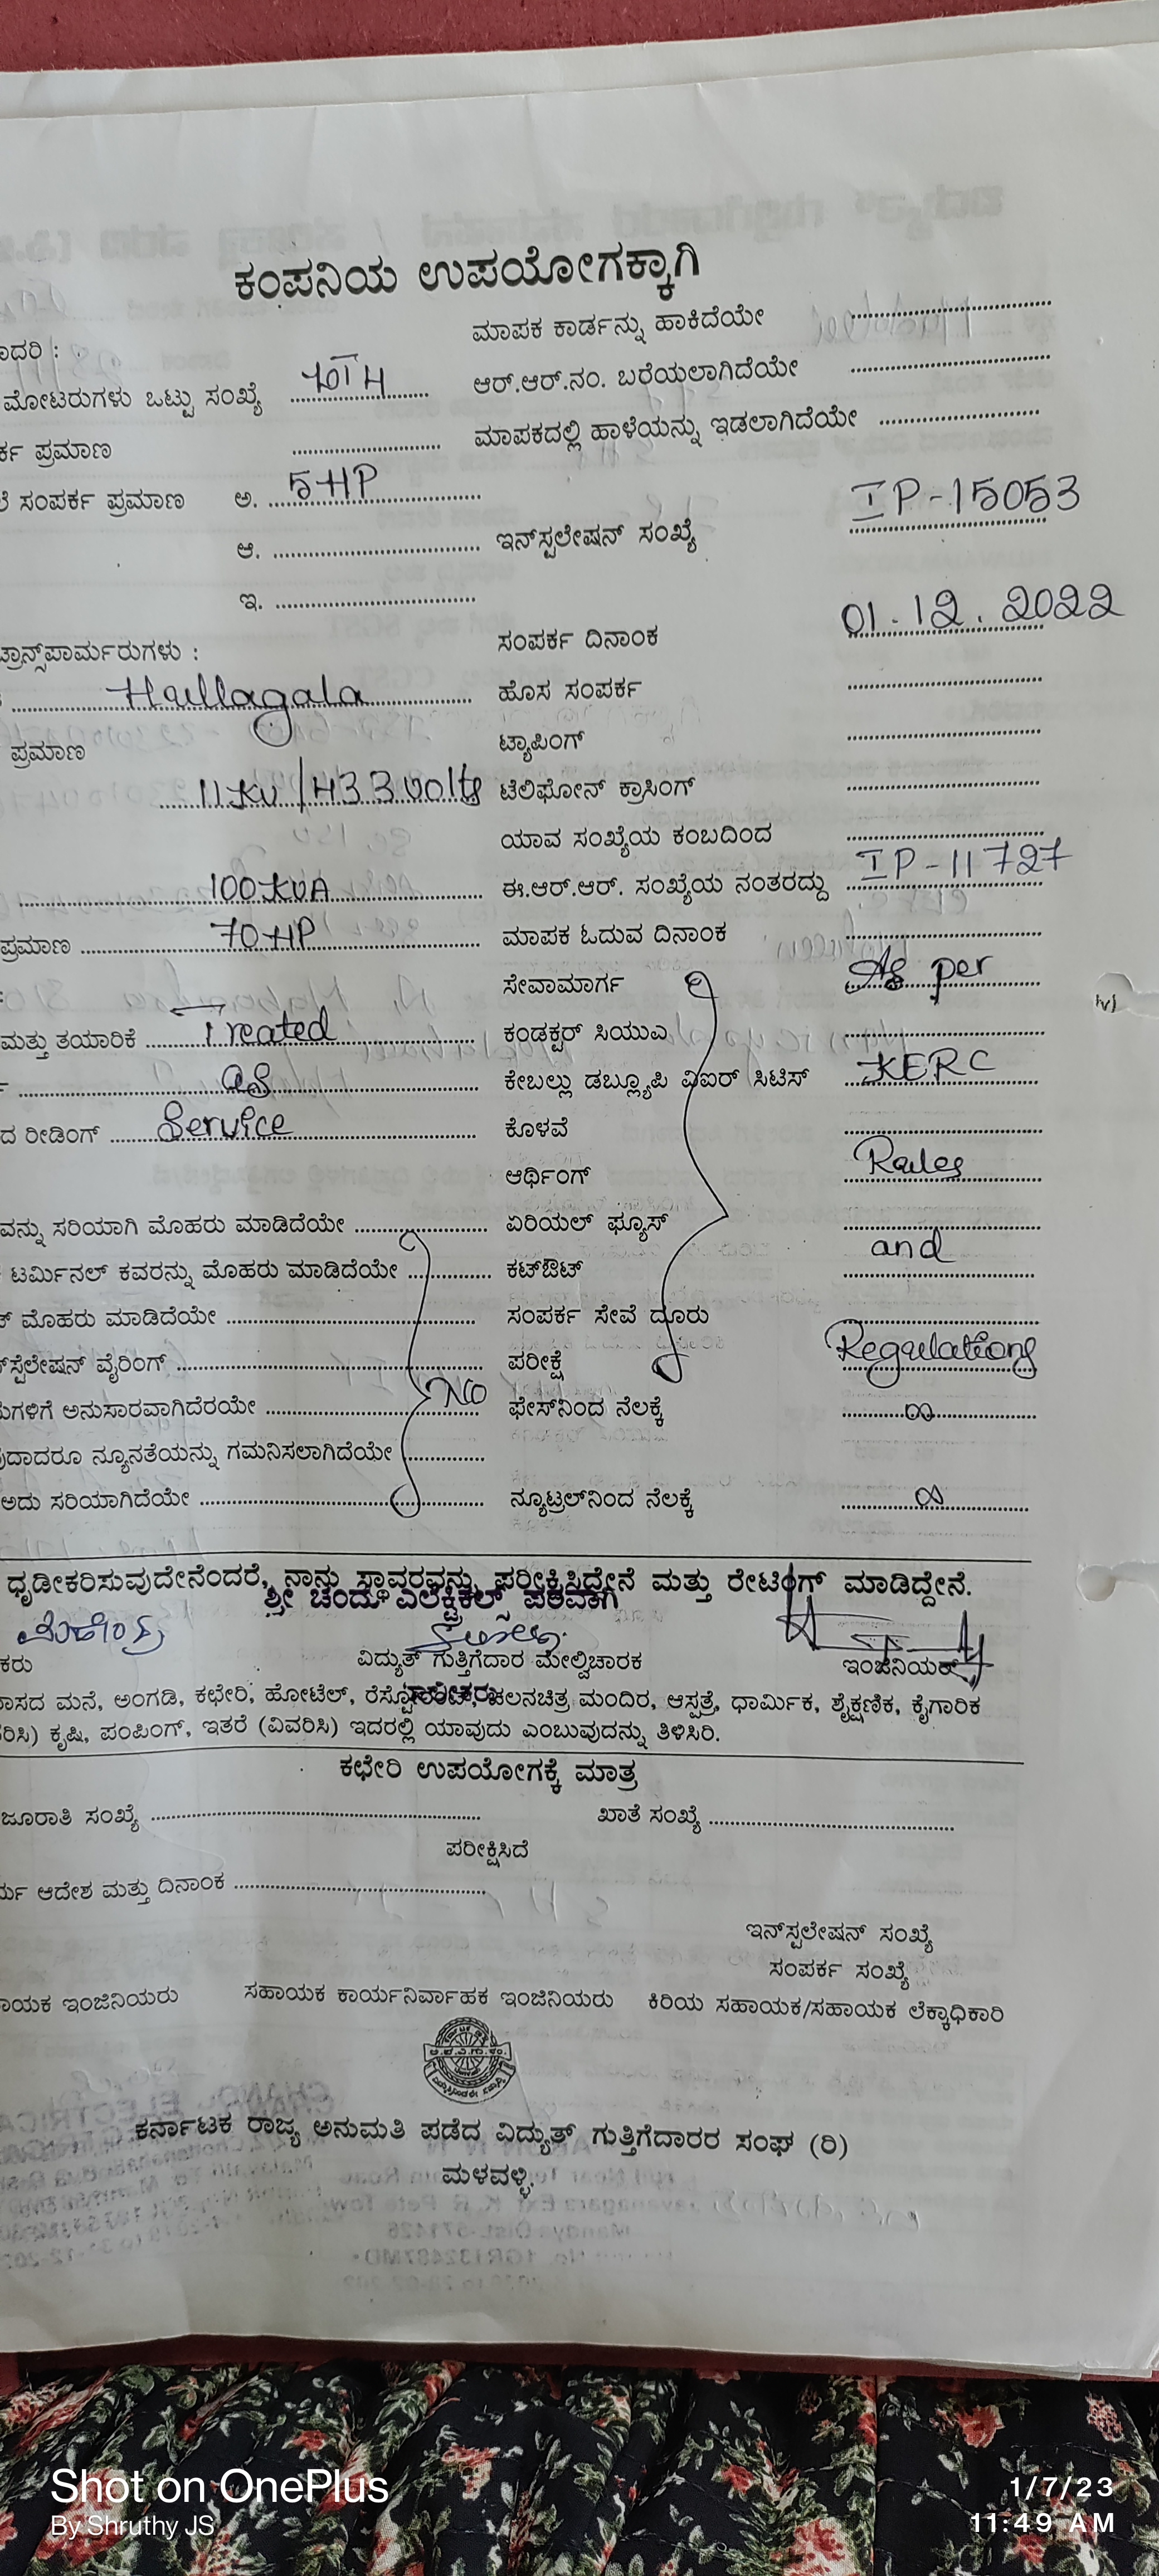 ಕಂಪನಿಯ ಉಪಯೋಗಕ್ಕಾಗಿ
ಮಾಪಕ ಕಾರ್ಡನ್ನು ಹಾಕಿದೆಯೇ
ಮೋಟರುಗಳು ಒಟ್ಟು ಸಂಖ್ಯೆ ಆರ್.ಆರ್.ನಂ. ಬರೆಯಲಾಗಿದೆಯೇ
ಪ್ರಮಾಣ ಮಾಪಕದಲ್ಲಿ ಹಾಳೆಯನ್ನು ಇಡಲಾಗಿದೆಯೇ
ಸಂಪರ್ಕ ಪ್ರಮಾಣ ಅ. 5HP
ಆ. ಇನ್‌ಸ್ಪಲೇಷನ್ ಸಂಖ್ಯೆ IP-15053
ಇ.
ಸಂಪರ್ಕ ದಿನಾಂಕ 01.12.2022
ಟ್ರಾನ್ಸ್‌ಪಾರ್ಮರುಗಳು :
Hullagala ಹೊಸ ಸಂಪರ್ಕ
ಪ್ರಮಾಣ ಟ್ಯಾಪಿಂಗ್
11KV/433volts ಟೆಲಿಫೋನ್ ಕ್ರಾಸಿಂಗ್
ಯಾವ ಸಂಖ್ಯೆಯ ಕಂಬದಿಂದ
100KVA ಈ.ಆರ್.ಆರ್. ಸಂಖ್ಯೆಯ ನಂತರದ್ದು IP-11727
ಪ್ರಮಾಣ 70HP ಮಾಪಕ ಓದುವ ದಿನಾಂಕ
ಸೇವಾಮಾರ್ಗ As per
ಮತ್ತು ತಯಾರಿಕೆ Treated ಕಂಡಕ್ಟರ್ ಸಿಯುಎ
as ಕೇಬಲ್ಲು ಡಬ್ಲ್ಯೂಪಿ ವಿಐರ್ ಸಿಟಿಸ್ KERC
ರೀಡಿಂಗ್ Service ಕೊಳವೆ
ಆರ್ಥಿಂಗ್ Rules
ಸರಿಯಾಗಿ ಮೊಹರು ಮಾಡಿದೆಯೇ ಏರಿಯಲ್ ಫ್ಯೂಸ್
and
ಟರ್ಮಿನಲ್ ಕವರನ್ನು ಮೊಹರು ಮಾಡಿದೆಯೇ ಕಟ್‌ಔಟ್
ಮೊಹರು ಮಾಡಿದೆಯೇ ಸಂಪರ್ಕ ಸೇವೆ ದೂರು
ವೈರಿಂಗ್ ಪರೀಕ್ಷೆ Regulations
ಅನುಸಾರವಾಗಿದೆರಯೇ No ಫೇಸ್‌ನಿಂದ ನೆಲಕ್ಕೆ ∞
ನ್ಯೂನತೆಯನ್ನು ಗಮನಿಸಲಾಗಿದೆಯೇ
ಅದು ಸರಿಯಾಗಿದೆಯೇ ನ್ಯೂಟ್ರಲ್‌ನಿಂದ ನೆಲಕ್ಕೆ ∞
ಧೃಡೀಕರಿಸುವುದೇನೆಂದರೆ, ನಾನು ಸ್ಥಾವರವನ್ನು ಪರೀಕ್ಷಿಸಿದ್ದೇನೆ ಮತ್ತು ರೇಟಿಂಗ್ ಮಾಡಿದ್ದೇನೆ.
ಶ್ರೀ ಚಂದು ಎಲೆಕ್ಟ್ರಿಕಲ್ಸ್ ಪರವಾಗಿ
ವಿದ್ಯುತ್ ಗುತ್ತಿಗೆದಾರ ಮೇಲ್ವಿಚಾರಕ ಇಂಜಿನಿಯರ್
ಮನೆ, ಅಂಗಡಿ, ಕಛೇರಿ, ಹೋಟೆಲ್, ಚಲನಚಿತ್ರ ಮಂದಿರ, ಆಸ್ಪತ್ರೆ, ಧಾರ್ಮಿಕ, ಶೈಕ್ಷಣಿಕ, ಕೈಗಾರಿಕ
ಕೃಷಿ, ಪಂಪಿಂಗ್, ಇತರೆ (ವಿವರಿಸಿ) ಇದರಲ್ಲಿ ಯಾವುದು ಎಂಬುವುದನ್ನು ತಿಳಿಸಿರಿ.
ಕಛೇರಿ ಉಪಯೋಗಕ್ಕೆ ಮಾತ್ರ
ಸಂಖ್ಯೆ ಖಾತೆ ಸಂಖ್ಯೆ
ಪರೀಕ್ಷಿಸಿದೆ
ಆದೇಶ ಮತ್ತು ದಿನಾಂಕ
ಇನ್‌ಸ್ಪಲೇಷನ್ ಸಂಖ್ಯೆ
ಸಂಪರ್ಕ ಸಂಖ್ಯೆ
ಇಂಜಿನಿಯರು ಸಹಾಯಕ ಕಾರ್ಯನಿರ್ವಾಹಕ ಇಂಜಿನಿಯರು ಕಿರಿಯ ಸಹಾಯಕ/ಸಹಾಯಕ ಲೆಕ್ಕಾಧಿಕಾರಿ
ಕರ್ನಾಟಕ ರಾಜ್ಯ ಅನುಮತಿ ಪಡೆದ ವಿದ್ಯುತ್ ಗುತ್ತಿಗೆದಾರರ ಸಂಘ (ರಿ)
ಮಳವಳ್ಳಿ.
Shot on OnePlus
By Shruthy JS
1/7/23
11:49 AM